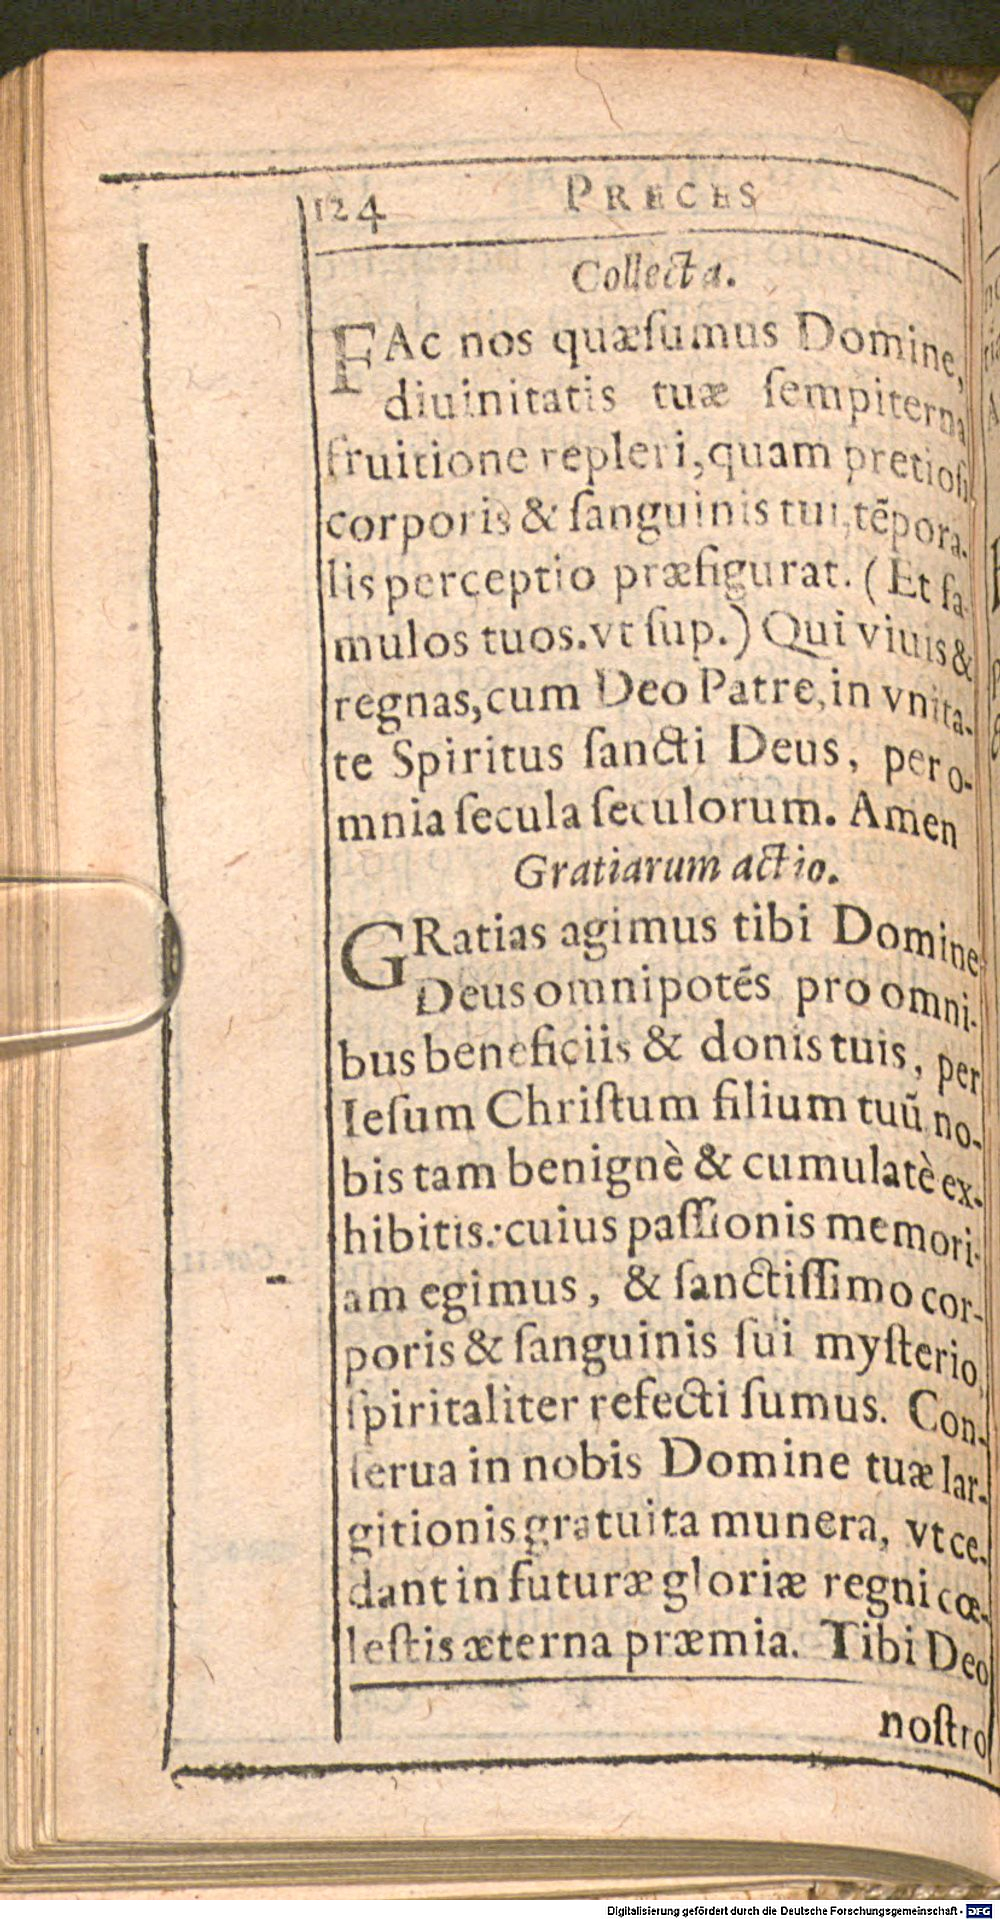 124 PRECES
Collecta.
FAc nos quæſumus Domine,
diuinitatis tuæ ſempiterna
fruitione repleri, quam pretioſi
corporis & ſanguinis tui, tẽpora-
lis perceptio præfigurat. (Et fa-
mulos tuos. vt ſup.) Qui viuis &
regnas, cum Deo Patre, in vnita-
te Spiritus ſancti Deus, per o-
mnia ſecula ſeculorum. Amen
Gratiarum actio.
GRatias agimus tibi Domine
Deus omnipotẽs pro omni-
bus beneficiis & donis tuis, per
Ieſum Chriſtum filium tuũ no-
bis tam benignè & cumulatè ex-
hibitis: cuius paſſionis memori-
am egimus, & ſanctiſſimo cor-
poris & ſanguinis ſui myſterio,
ſpiritaliter refecti ſumus. Con-
ſerua in nobis Domine tuæ lar-
gitionis gratuita munera, vt ce-
dant in futuræ gloriæ regni cœ-
leſtis æterna præmia. Tibi Deo
noſtro
Digitalisierung gefördert durch die Deutsche Forschungsgemeinschaft - DFG